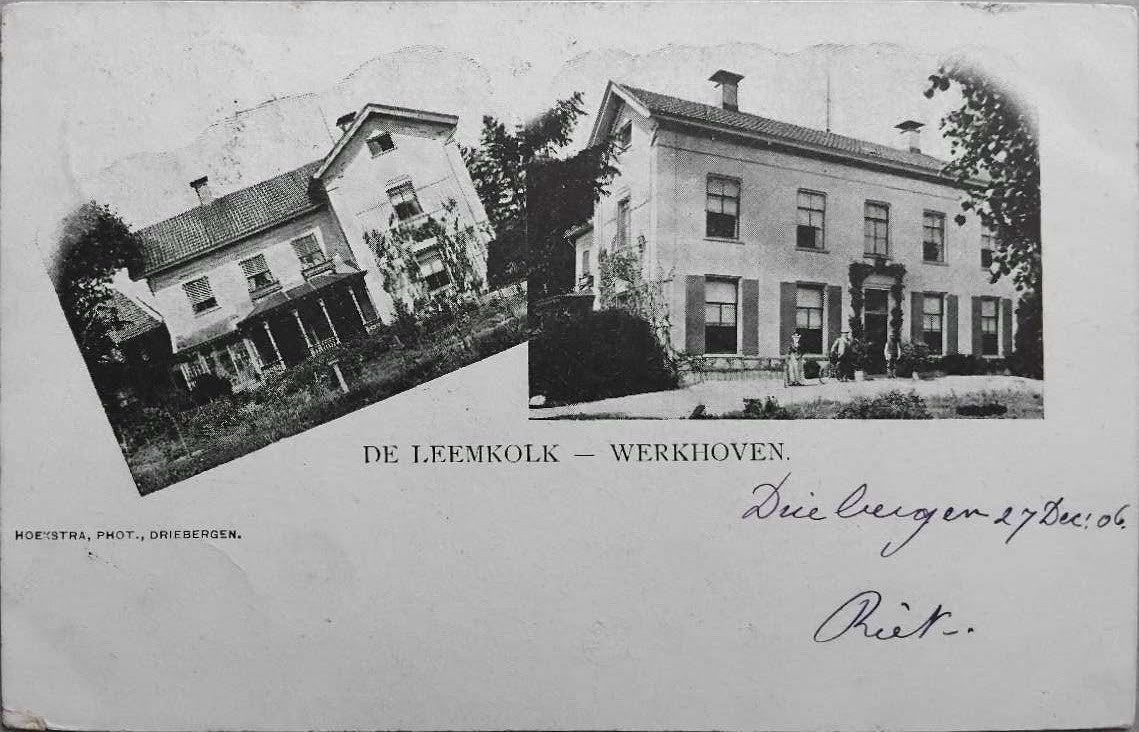 DE LEEMKOLK — WERKHOVEN.
HOEKSTRA, PHOT., DRIEBERGEN.
Driebergen 27 Dec. 06.
Riet.